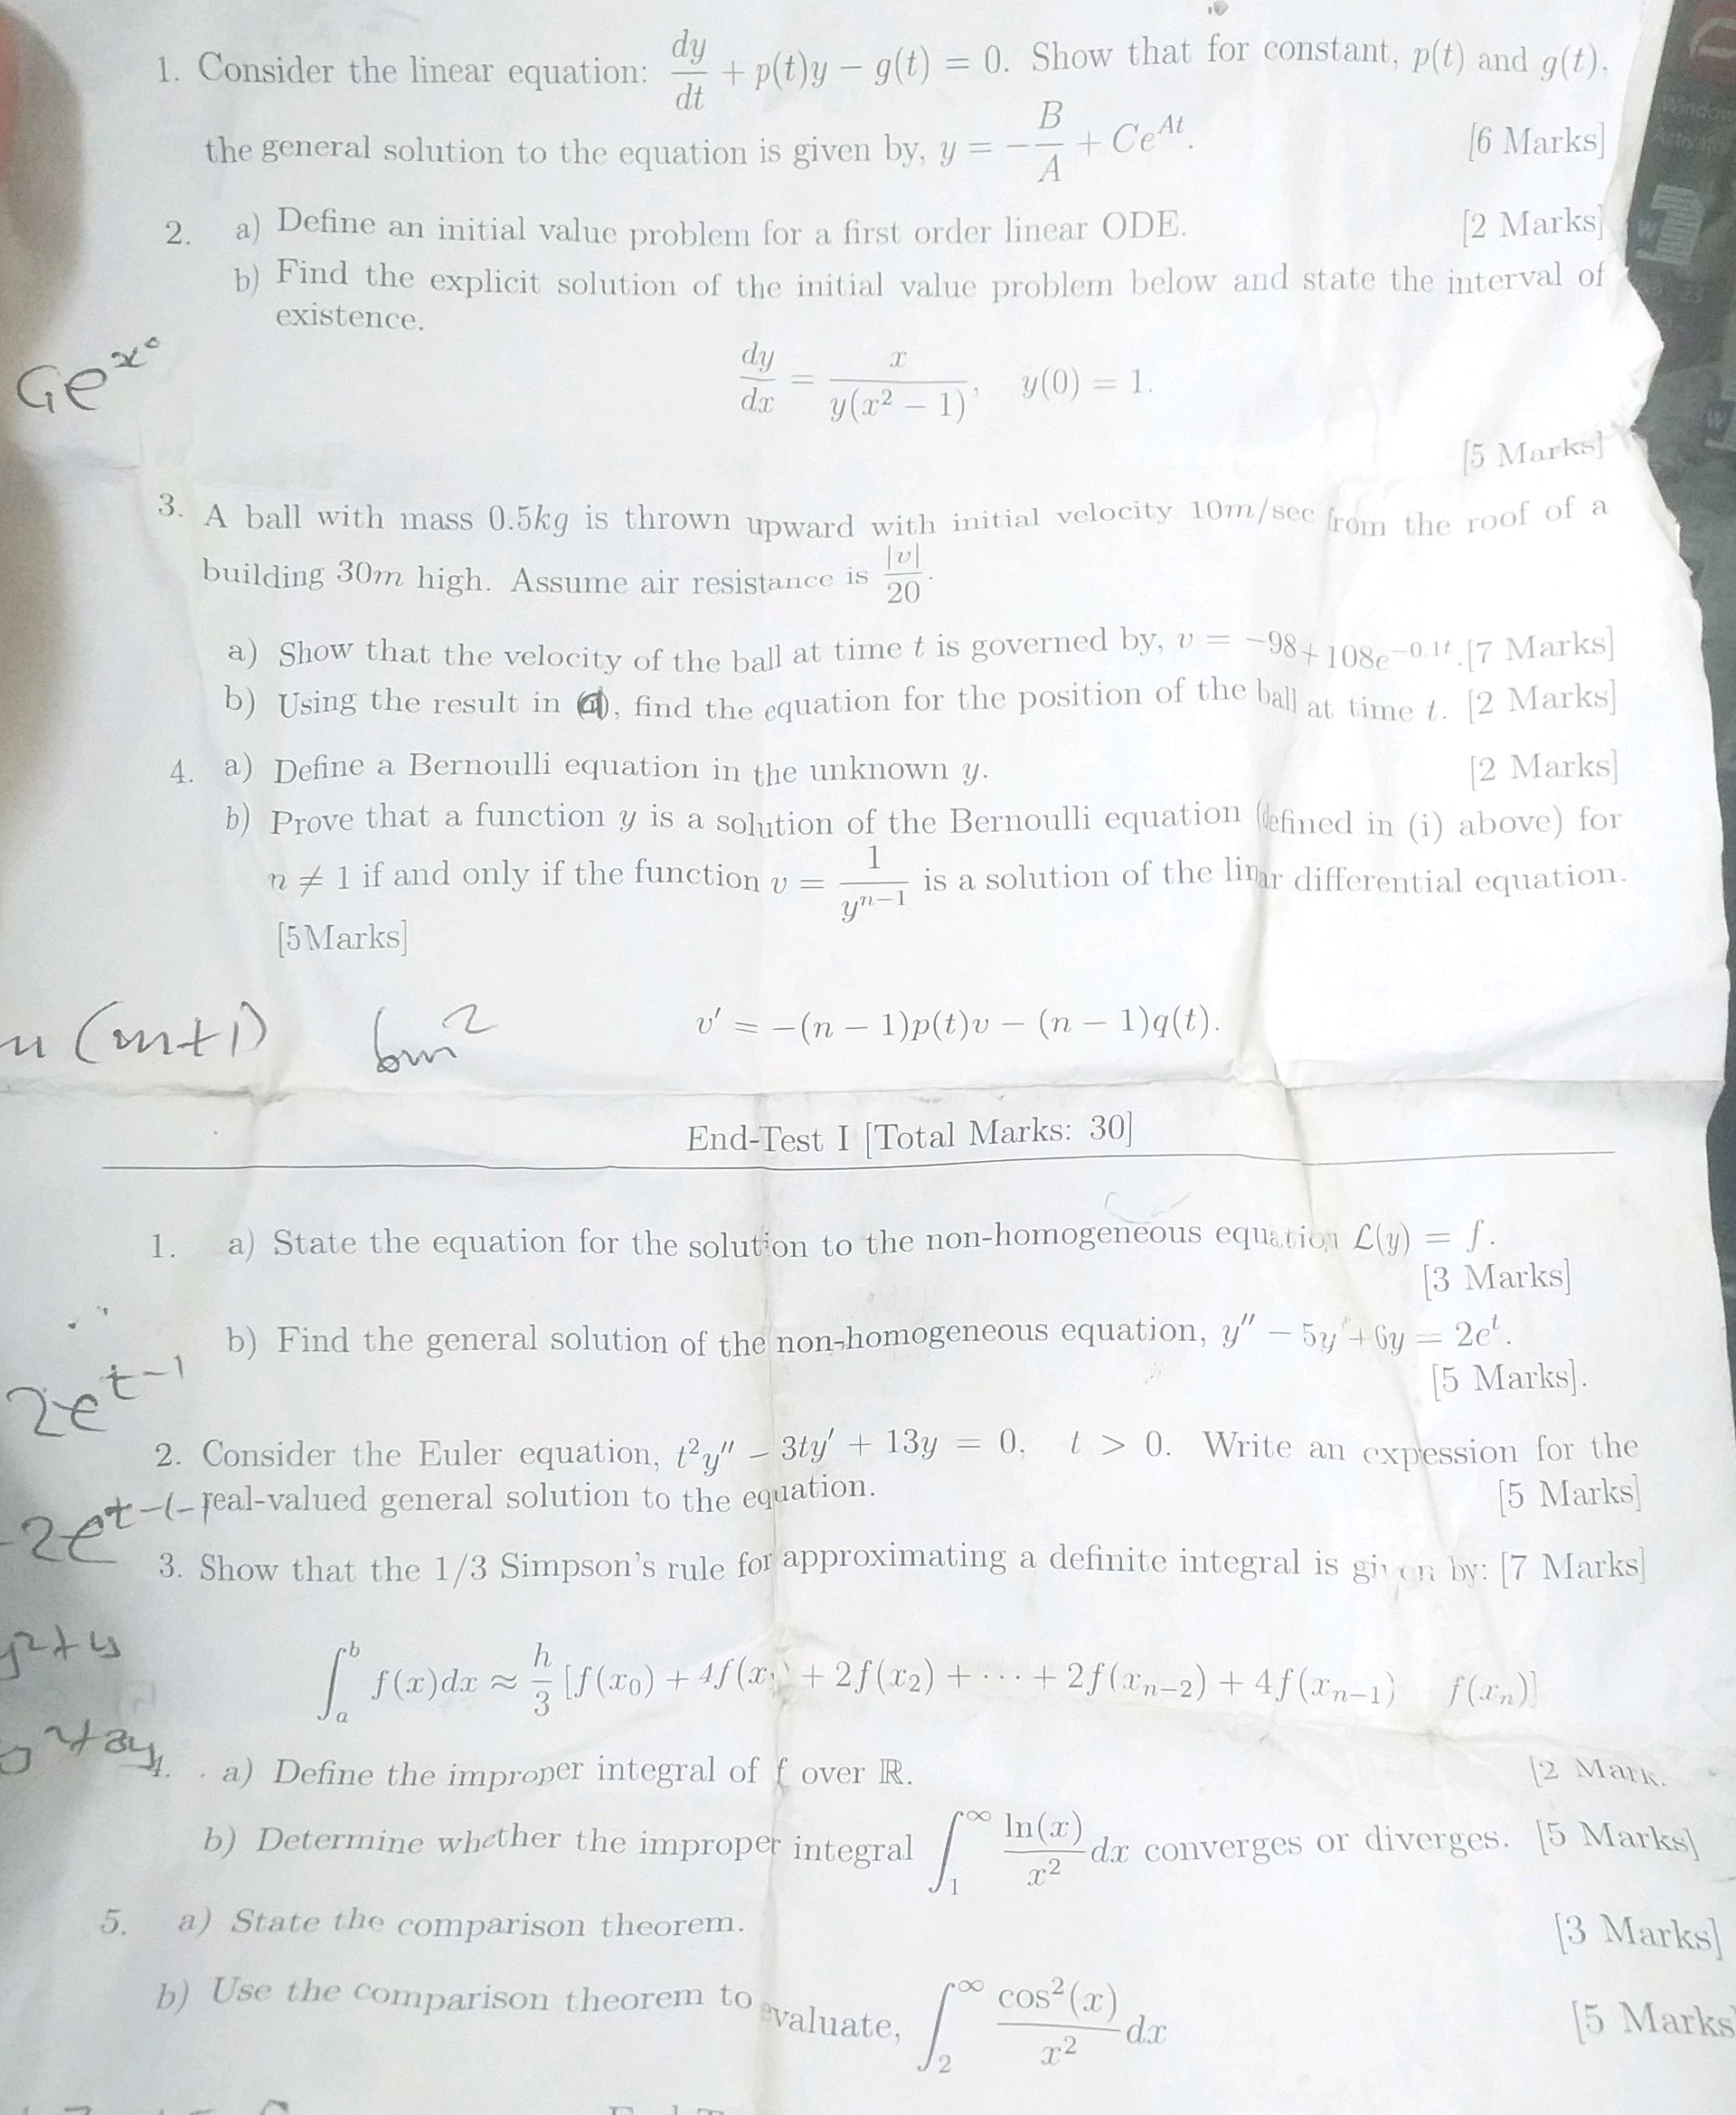 1. Consider the linear equation: dy/dt + p(t)y − g(t) = 0. Show that for constant, p(t) and g(t),
the general solution to the equation is given by, y = −B/A + Ce^{At}. [6 Marks]
2. a) Define an initial value problem for a first order linear ODE. [2 Marks]
b) Find the explicit solution of the initial value problem below and state the interval of
existence.
dy/dx = x/(y(x² − 1)), y(0) = 1.
[5 Marks]
3. A ball with mass 0.5kg is thrown upward with initial velocity 10m/sec from the roof of a
building 30m high. Assume air resistance is |v|/20.
a) Show that the velocity of the ball at time t is governed by, v = −98 + 108e^{−0.1t}. [7 Marks]
b) Using the result in (a), find the equation for the position of the ball at time t. [2 Marks]
4. a) Define a Bernoulli equation in the unknown y. [2 Marks]
b) Prove that a function y is a solution of the Bernoulli equation (defined in (i) above) for
n ≠ 1 if and only if the function v = 1/y^{n−1} is a solution of the linar differential equation.
[5Marks]
(m+1) 6m²
v′ = −(n − 1)p(t)v − (n − 1)q(t).
End-Test I [Total Marks: 30]
1. a) State the equation for the solution to the non-homogeneous equation L(y) = f.
[3 Marks]
b) Find the general solution of the non-homogeneous equation, y″ − 5y′ + 6y = 2e^t.
[5 Marks].
2e^{t−1}
2. Consider the Euler equation, t²y″ − 3ty′ + 13y = 0, t > 0. Write an expession for the
real-valued general solution to the equation. [5 Marks]
3. Show that the 1/3 Simpson's rule for approximating a definite integral is given by: [7 Marks]
∫_a^b f(x)dx ≈ h/3 [f(x₀) + 4f(x₁) + 2f(x₂) + ··· + 2f(x_{n−2}) + 4f(x_{n−1}) f(x_n)]
4. a) Define the improper integral of f over ℝ. [2 Mark
b) Determine whether the improper integral ∫_1^∞ ln(x)/x² dx converges or diverges. [5 Marks]
5. a) State the comparison theorem. [3 Marks]
b) Use the comparison theorem to evaluate, ∫_2^∞ cos²(x)/x² dx [5 Marks